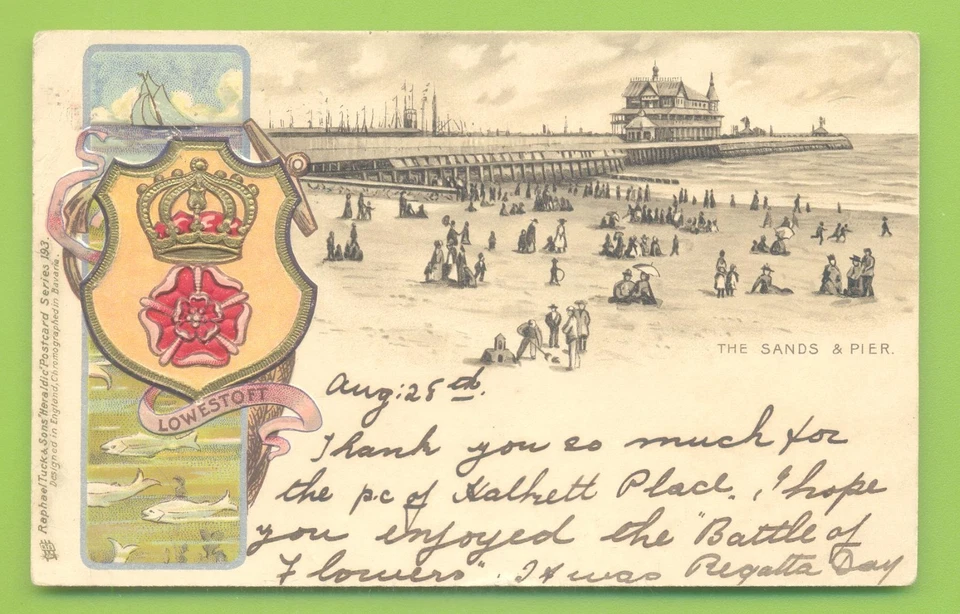 Raphael Tuck & Sons' "Heraldic" Postcard Series 193.
Designed in England, Chromographed in Bavaria.
LOWESTOFT
THE SANDS & PIER.
Aug: 25th.
Thank you so much for
the p.c of Halkett Place. I hope
you enjoyed the "Battle of
Flowers". It was Regatta Day